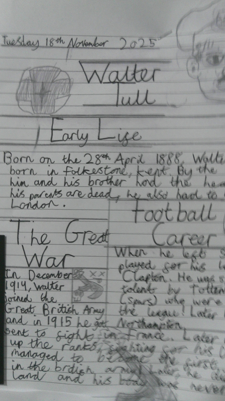 Tuesday 18th November 2025
Walter
Tull
Early Life
Born on the 28th April 1888, Walte
born in folkestone, kent. By the
him and his brother had the he
his parents are dead, he also had to
London.
Football
Career
The Great
War
When he left S
played for his l
Clapton. He was s
talent by Totten
(spurs) who were
the league! Later
In December
1914, Walter
joined the
Great British Army
and in 1915 he at Northampton
sent to fight in france. Later
up the ranks, fighting for his
managed to the first
in the british army
land and his bod was never